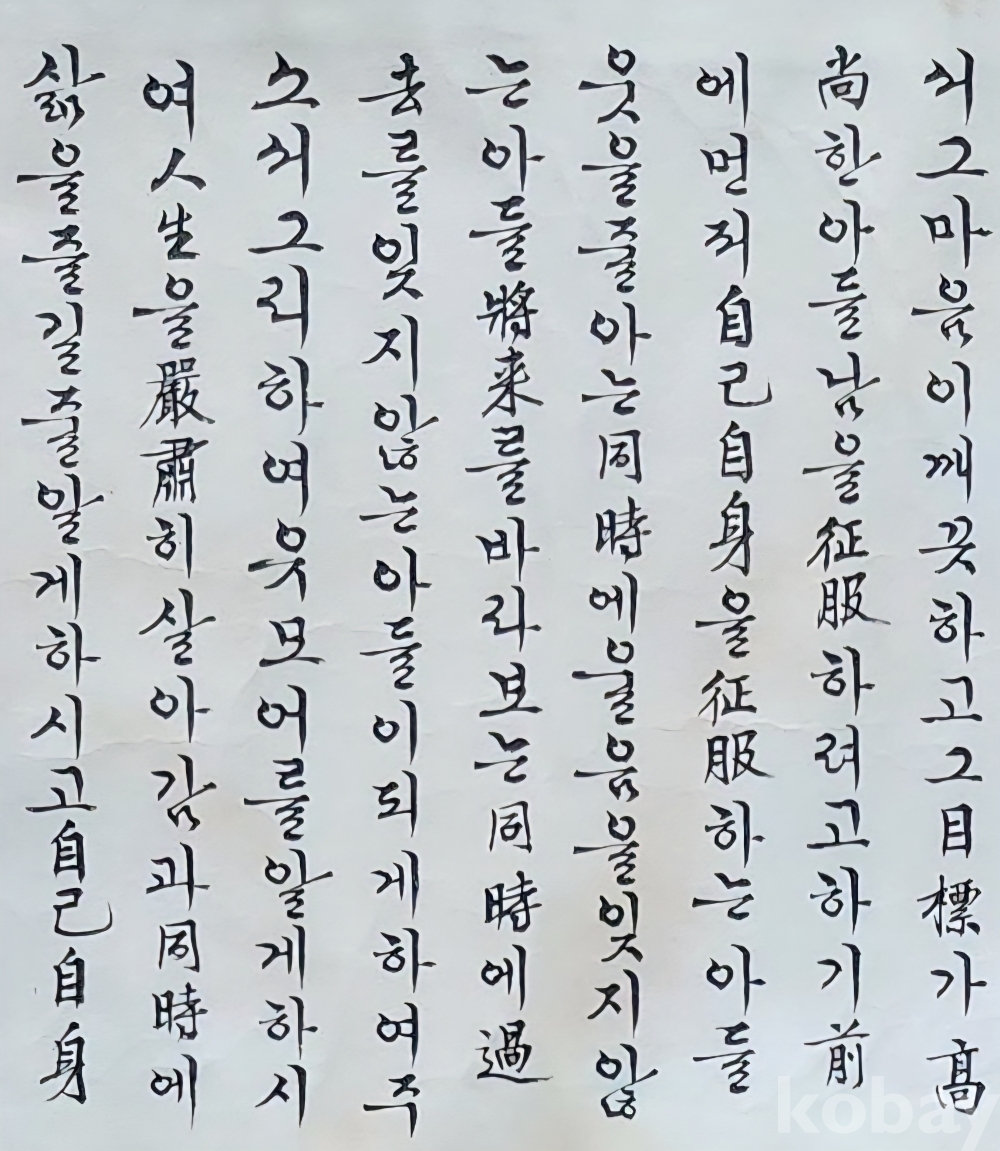 서그마음이깨끗하고그目標가高
尚한아들남을征服하려고하기前
에먼저自己自身을征服하는아들
웃을줄아는同時에울음을잊지않
는아들將来를바라보는同時에過
去를잊지않는아들이되게하여주
소서그리하여유모어를알게하시
여人生을嚴肅히살아감과同時에
삶을즐길줄알게하시고自己自身
kobay